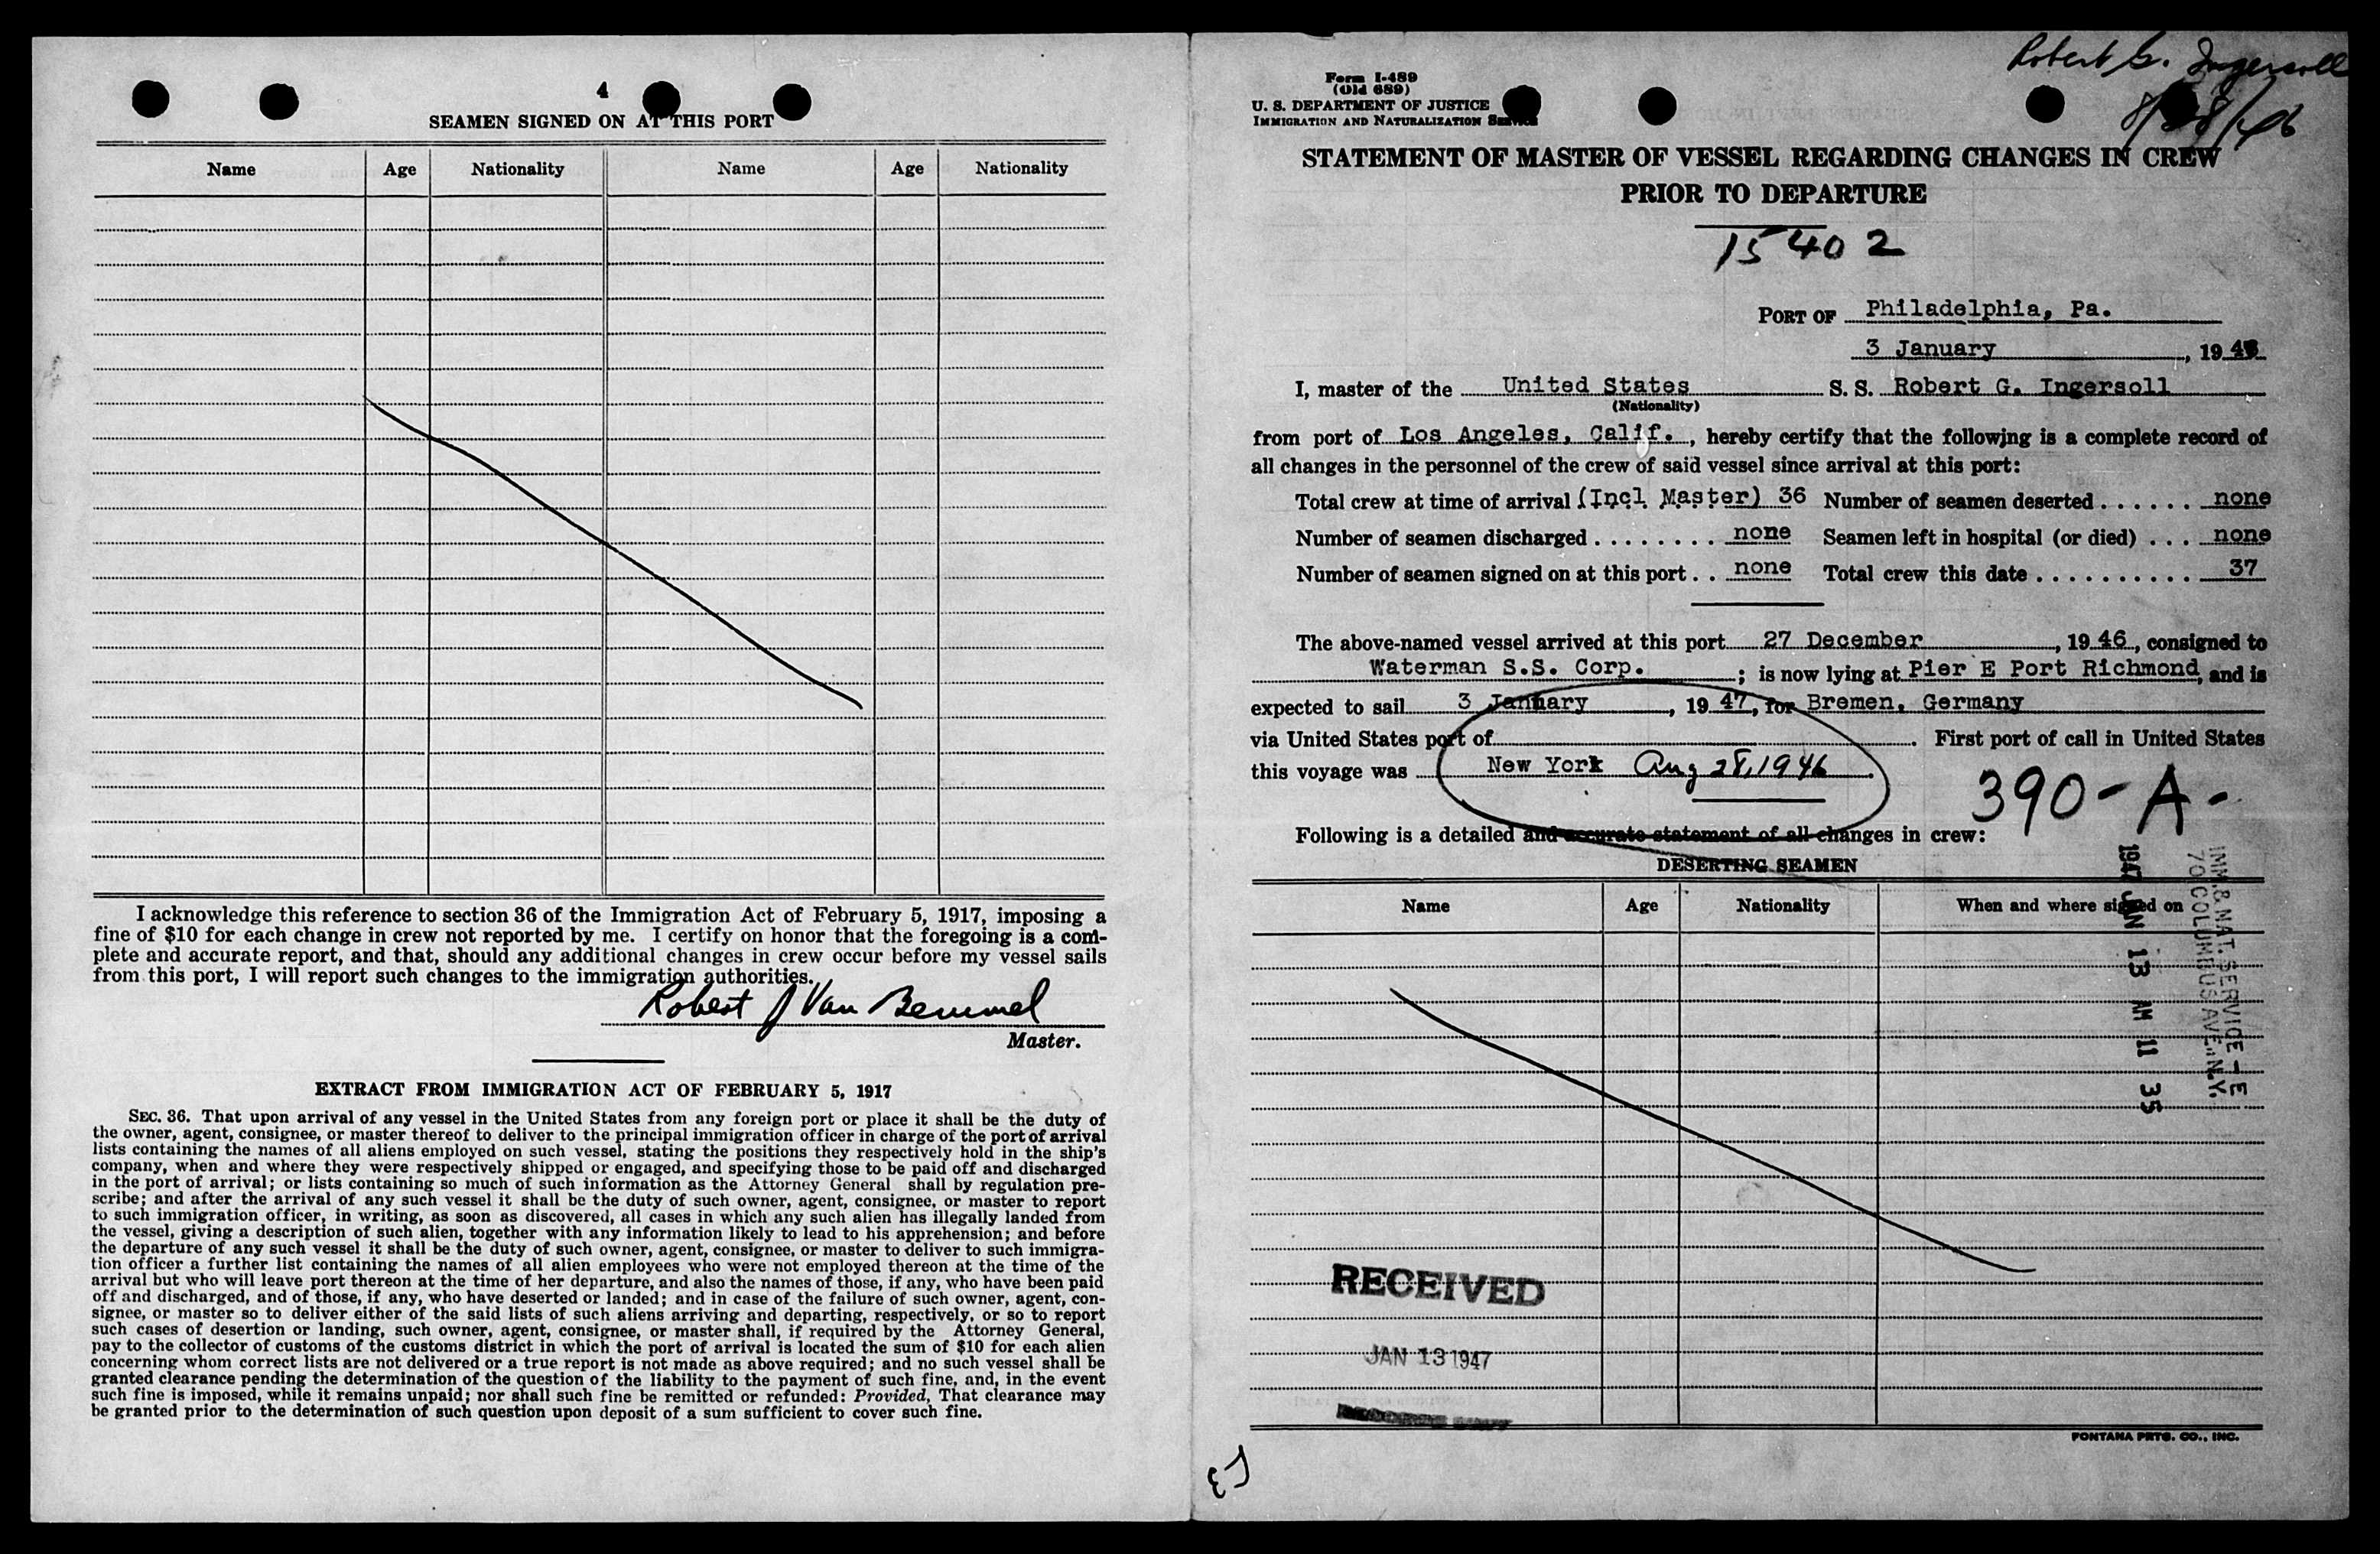 4
SEAMEN SIGNED ON AT THIS PORT
Name Age Nationality Name Age Nationality
I acknowledge this reference to section 36 of the Immigration Act of February 5, 1917, imposing a
fine of $10 for each change in crew not reported by me. I certify on honor that the foregoing is a com-
plete and accurate report, and that, should any additional changes in crew occur before my vessel sails
from this port, I will report such changes to the immigration authorities.
Robert J Van Bemmel
Master.
EXTRACT FROM IMMIGRATION ACT OF FEBRUARY 5, 1917
SEC. 36. That upon arrival of any vessel in the United States from any foreign port or place it shall be the duty of
the owner, agent, consignee, or master thereof to deliver to the principal immigration officer in charge of the port of arrival
lists containing the names of all aliens employed on such vessel, stating the positions they respectively hold in the ship's
company, when and where they were respectively shipped or engaged, and specifying those to be paid off and discharged
in the port of arrival; or lists containing so much of such information as the Attorney General shall by regulation pre-
scribe; and after the arrival of any such vessel it shall be the duty of such owner, agent, consignee, or master to report
to such immigration officer, in writing, as soon as discovered, all cases in which any such alien has illegally landed from
the vessel, giving a description of such alien, together with any information likely to lead to his apprehension; and before
the departure of any such vessel it shall be the duty of such owner, agent, consignee, or master to deliver to such immigra-
tion officer a further list containing the names of all alien employees who were not employed thereon at the time of the
arrival but who will leave port thereon at the time of her departure, and also the names of those, if any, who have been paid
off and discharged, and of those, if any, who have deserted or landed; and in case of the failure of such owner, agent, con-
signee, or master so to deliver either of the said lists of such aliens arriving and departing, respectively, or so to report
such cases of desertion or landing, such owner, agent, consignee, or master shall, if required by the Attorney General,
pay to the collector of customs of the customs district in which the port of arrival is located the sum of $10 for each alien
concerning whom correct lists are not delivered or a true report is not made as above required; and no such vessel shall be
granted clearance pending the determination of the question of the liability to the payment of such fine, and, in the event
such fine is imposed, while it remains unpaid; nor shall such fine be remitted or refunded: Provided, That clearance may
be granted prior to the determination of such question upon deposit of a sum sufficient to cover such fine.
Robert G. Ingersoll
8/28/46
Form I-489
(Old 689)
U. S. DEPARTMENT OF JUSTICE
IMMIGRATION AND NATURALIZATION SERVICE
STATEMENT OF MASTER OF VESSEL REGARDING CHANGES IN CREW
PRIOR TO DEPARTURE
15402
PORT OF Philadelphia, Pa.
3 January, 19
I, master of the United States S. S. Robert G. Ingersoll
(Nationality)
from port of Los Angeles, Calif., hereby certify that the following is a complete record of
all changes in the personnel of the crew of said vessel since arrival at this port:
Total crew at time of arrival (Incl Master) 36 Number of seamen deserted ...... none
Number of seamen discharged ........ none Seamen left in hospital (or died) ... none
Number of seamen signed on at this port .. none Total crew this date ........... 37
The above-named vessel arrived at this port 27 December, 1946, consigned to
Waterman S.S. Corp. ; is now lying at Pier E Port Richmond, and is
expected to sail 3 January, 1947, for Bremen, Germany
via United States port of . First port of call in United States
this voyage was New York Aug 28, 1946.
390-A-
Following is a detailed and accurate statement of all changes in crew:
DESERTING SEAMEN
Name Age Nationality When and where signed on
IMM. & NAT. SERVICE - E
70 COLUMBUS AVE., N.Y.
1947 JAN 13 AM 11 35
RECEIVED
JAN 13 1947
FONTANA PRTG. CO., INC.